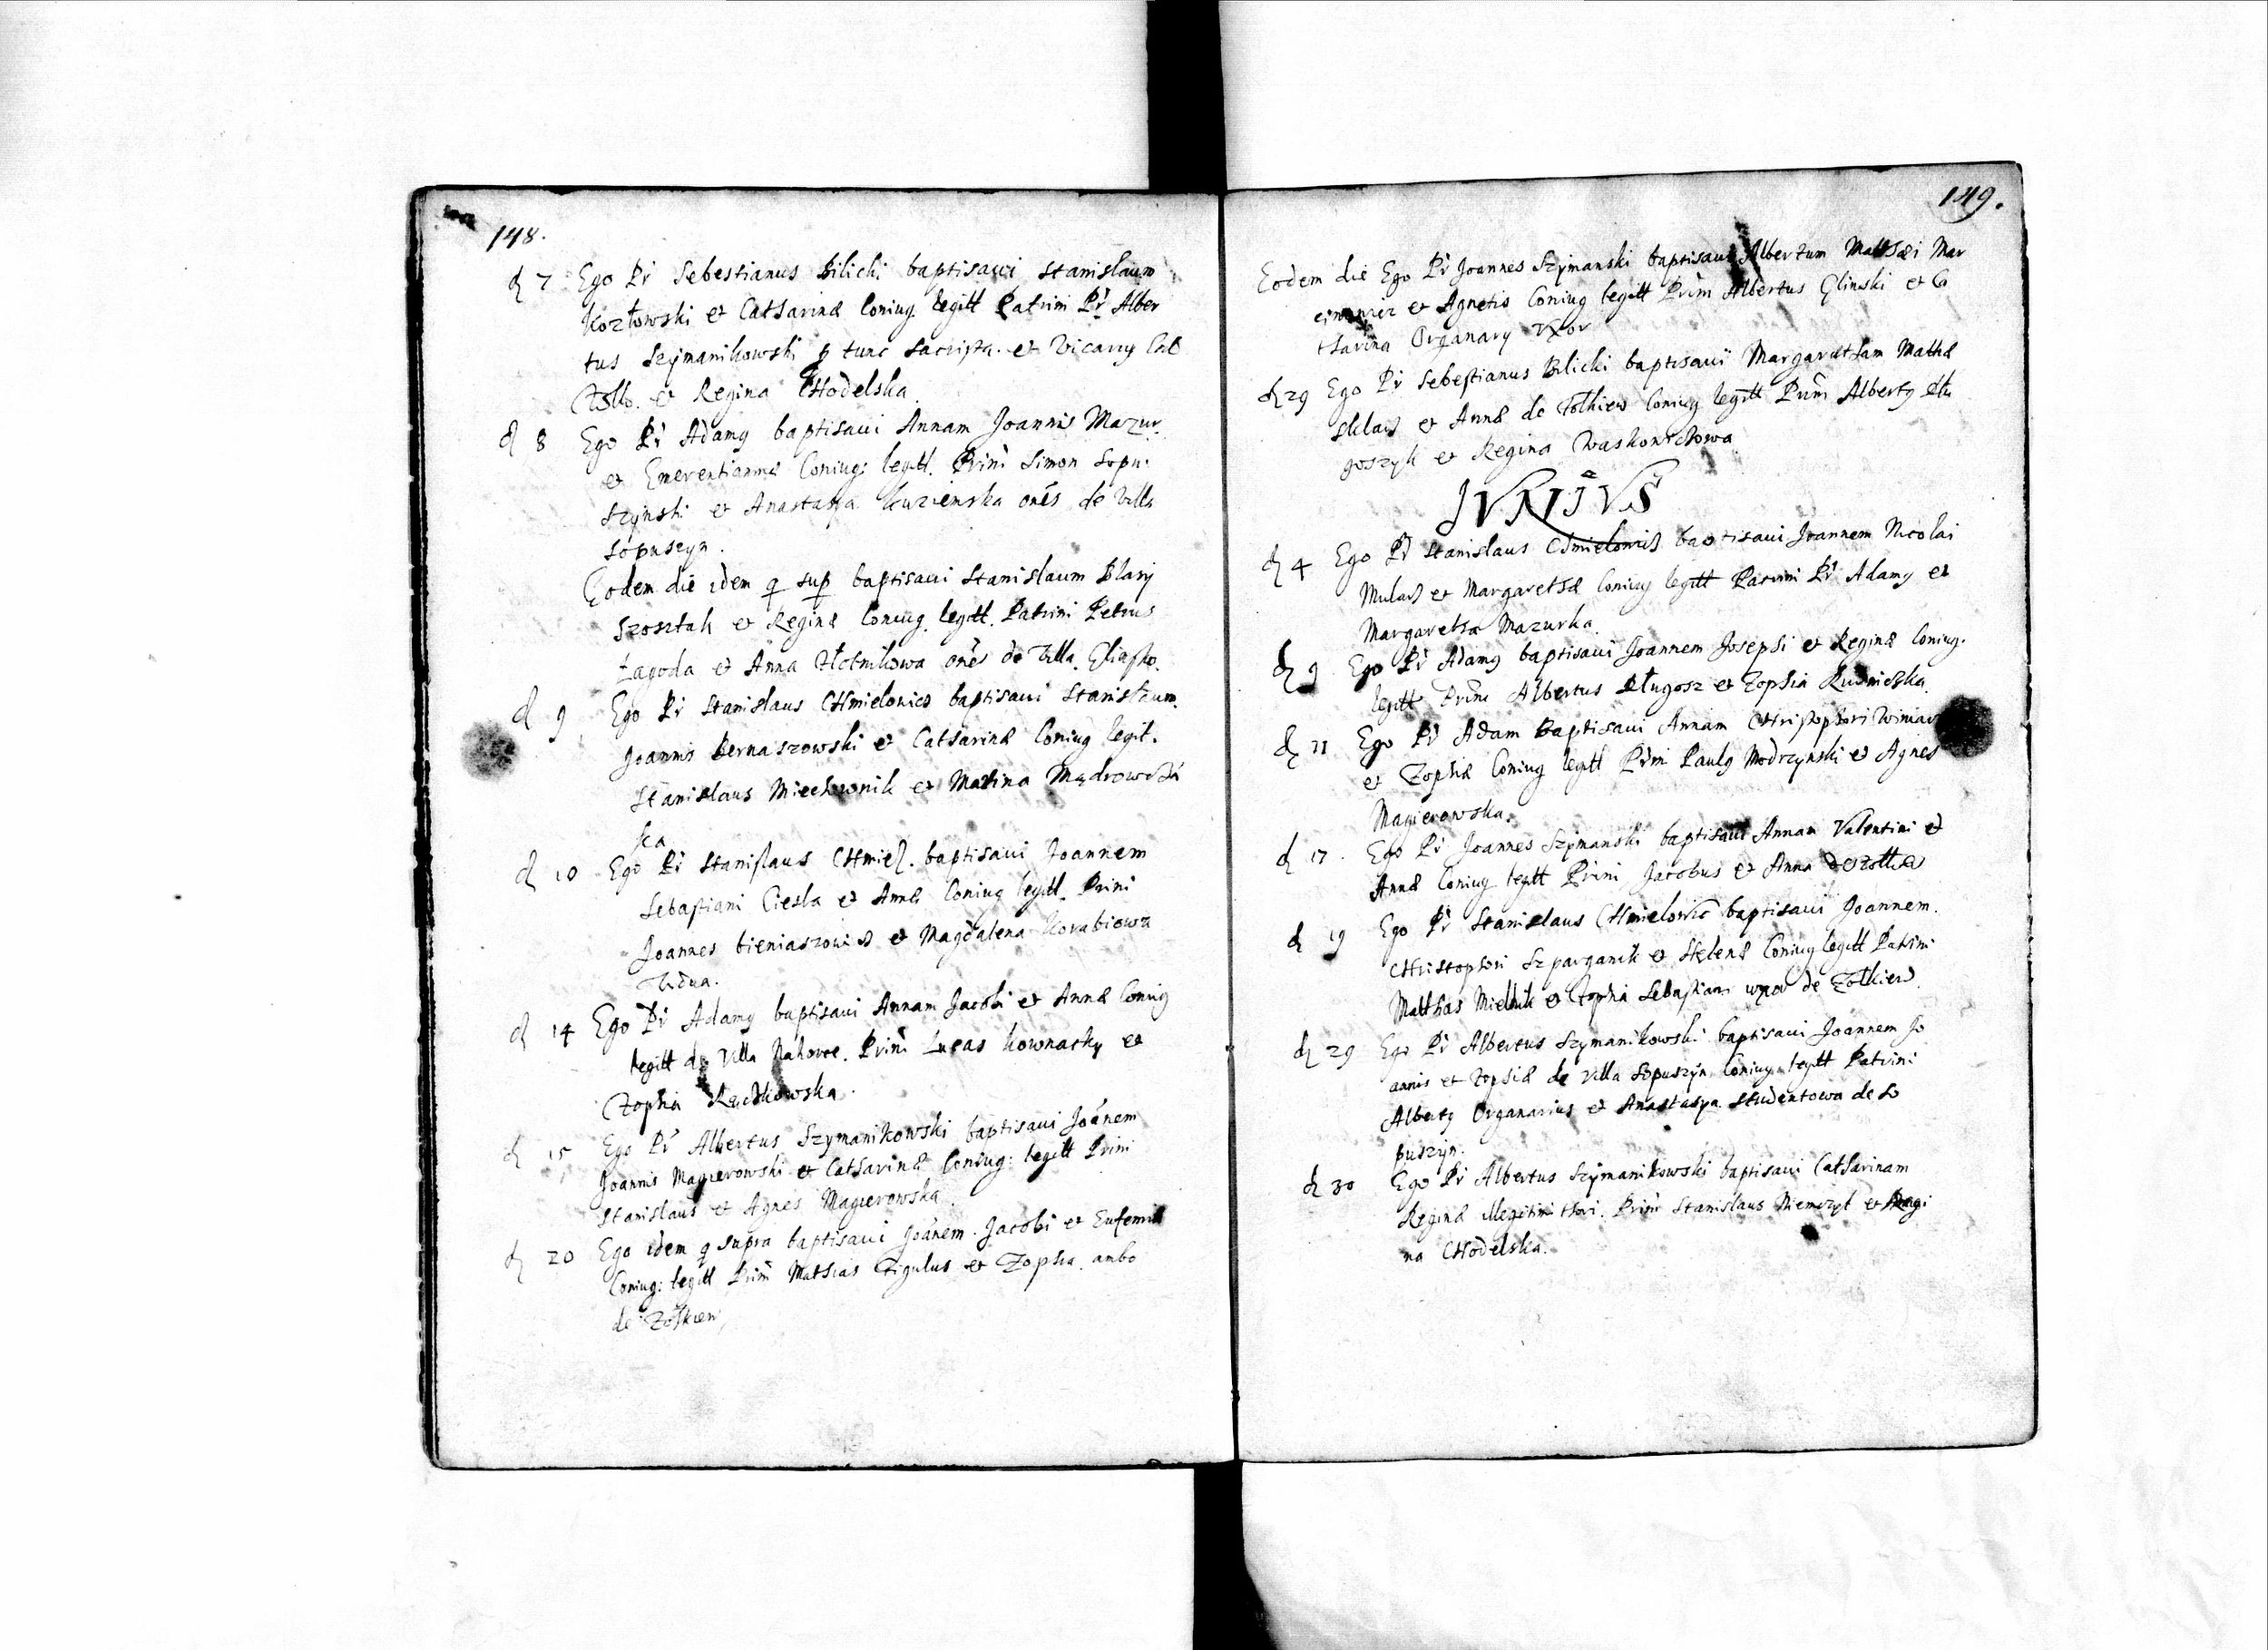 148.
d 7 Ego Pr Sebestianus Bilicki baptisavi Stanislaum
Kozłowski et Catharinæ Coniug. legitt Patrini Pr Alber
tus Szymanikowski p tunc et Vicarij
et Regina CHodelska.
d 8 Ego Pr Adamg baptisaui Annam Joannis Mazur
et Emerentiannæ Coniug: legitt. Prini Simon Sopu-
szynski et Anastasya Kuzienska onēs de Villa
Sopuszyn.
Eodem die idem q sup baptisaui Stanislaum Blasij
Szosztak et Reginæ Coniug. legitt. Patrini Petrus
Łagoda et Anna onēs de Villa
d 9 Ego Pr Stanislaus CHmielowicz baptisaui Stanislaum
Joannis Bernaszowski et Catharinæ Coniug legit.
Stanislaus Miechownik et Marina
ka
d 10 Ego Pr Stanislaus CHmiel. baptisaui Joannem
Sebastiani Ciesla et Annæ Coniug legitt. Prini
Joannes bieniaszowicz et Magdalena Korabiowa
Vidua.
d 14 Ego Pr Adamg baptisaui Annam Jacobi et Annæ Coniug
legitt de Villa Nahorce. Prini Lucas Kownacky et
Zophia
d 15 Ego Pr Albertus Szymanikowski baptisaui Joānem
Joannis Magierowski et Catharinæ Coniug: legitt Prini
Stanislaus et Agnes Magierowska.
d 20 Ego idem q supra baptisaui Joānem Jacobi et Eufemiæ
Coniug: legitt Prini Mathias Figulus et Zophia ambo
de Zolkiew
149.
Eodem die Ego Pr Joannes Szymanski baptisaui Albertum Matthæi Mar
et Agnetis Coniug legitt Prini Albertus Glinski et Ca
tharina Organary Vxor
d 29 Ego Pr Sebestianus Bilicki baptisaui Margaretham Mathæ
et Annæ de Zolkiew Coniug legitt Prini Albertg
goszyk et Regina Waskowiczowa
JVNIVS
d 4 Ego Pr Stanislaus CHmielowicz baptisaui Joannem Nicolai
Mularz et Margarethæ Coniug legitt Patrini Pr Adamg et
Margaretha Mazurka.
d 9 Ego Pr Adamg baptisaui Joannem Josephi et Reginæ Coniug.
legitt Prini Albertus Długosz et Zophia
d 11 Ego Pr Adam Baptisaui Annam CHristophori Winiar
et Zophiæ Coniug legitt Prini Paulg Modrzynski et Agnes
Magierowska.
d 17. Ego Pr Joannes Szymanski baptisaui Annam Valentini et
Annæ Coniug legitt Prini Jacobus et Anna
d 19 Ego Pr Stanislaus CHmielowic baptisaui Joannem
CHristophori Szparganik et Helenæ Coniug legitt Patrini
Matthias Mielnik et Zophia Sebastiani uxor de Zolkiew
d 29 Ego Pr Albertus Szymanikowski baptisaui Joannem Jo
annis et Zophiæ de Villa Sopuszyn Coniug legitt Patrini
Albertg Organarius et Anastasya Studentowa de So
puszyn.
d 30 Ego Pr Albertus Szymanikowski baptisaui Catharinam
Reginæ illegitimi thori. Prini Stanislaus Niemczyk et Regi
na CHodelska.